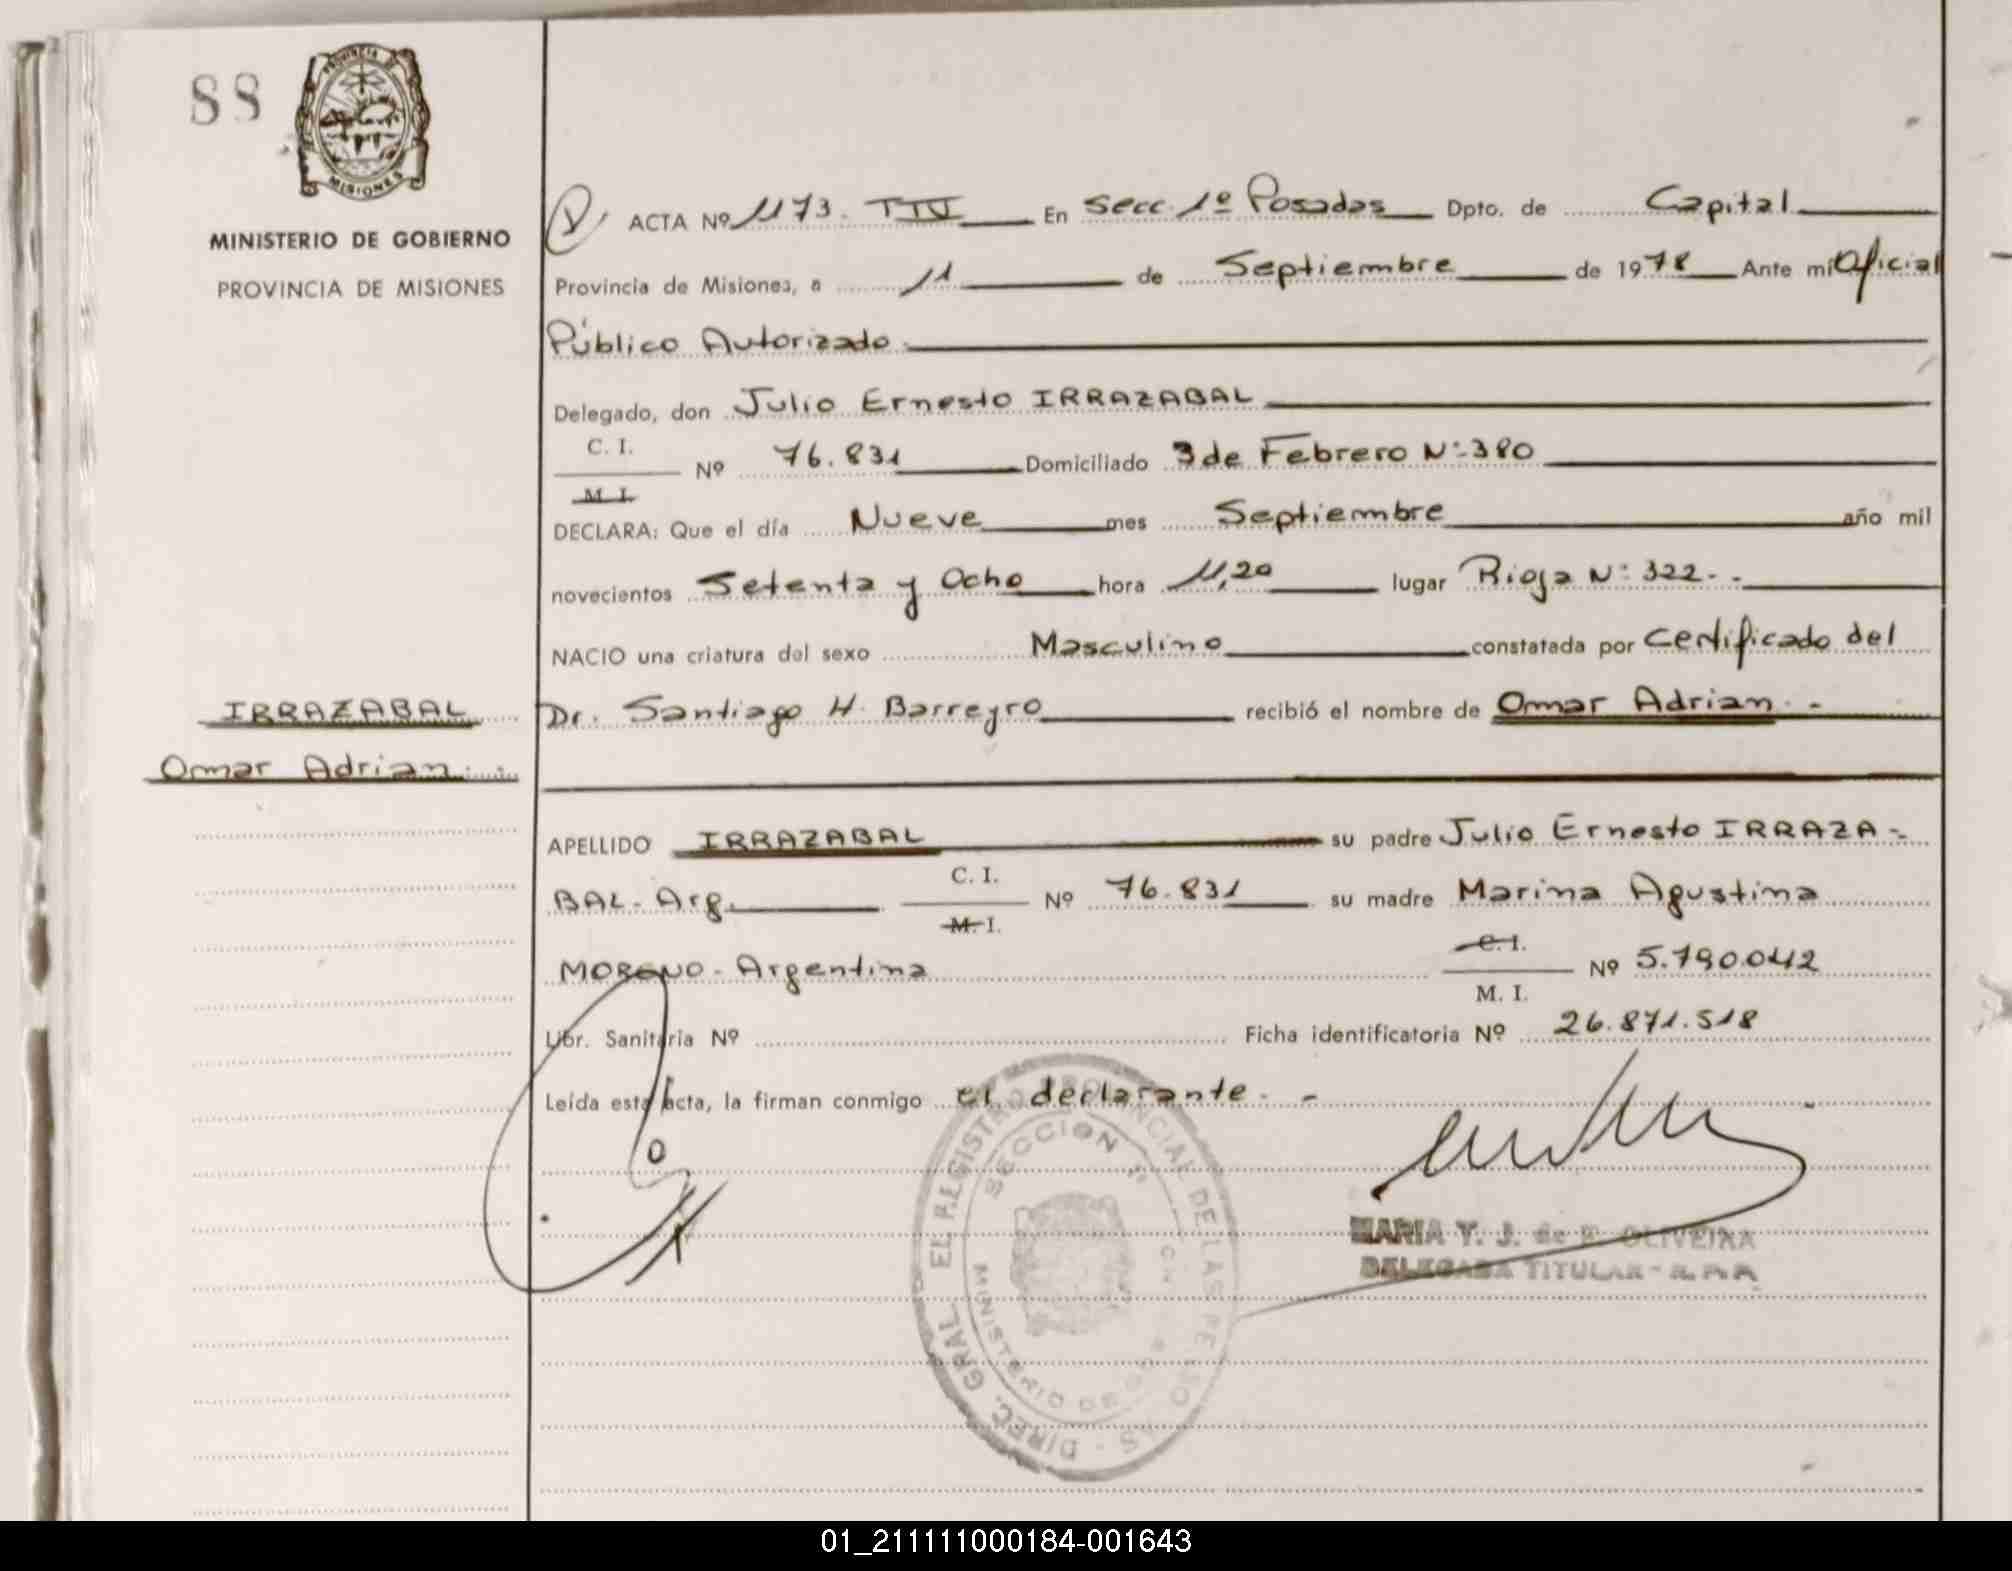 88
PROVINCIA DE
MISIONES
MINISTERIO DE GOBIERNO
PROVINCIA DE MISIONES
IRRAZABAL
Omar Adrian
ACTA Nº 1173. TIV En Secc. 1º Posadas Dpto. de Capital
Provincia de Misiones, a 11 de Septiembre de 1978 Ante mi Oficial
Público Autorizado
Delegado, don Julio Ernesto IRRAZABAL
C. I.
Nº 76.831 Domiciliado 3 de Febrero Nº 380
M. I.
DECLARA: Que el día Nueve mes Septiembre año mil
novecientos Setenta y Ocho hora 11,20 lugar Rioja Nº 322.-
NACIO una criatura del sexo Masculino constatada por Certificado del
Dr. Santiago H. Barreyro recibió el nombre de Omar Adrian. -
APELLIDO IRRAZABAL su padre Julio Ernesto IRRAZA-
BAL- Arg. C. I. Nº 76.831 su madre Marina Agustina
M. I.
MORENO- Argentina C. I. Nº 5.790.042
M. I.
Libr. Sanitaria Nº Ficha identificatoria Nº 26.871.518
Leída esta acta, la firman conmigo el declarante. -
MARIA Y. J. de OLIVEIRA
DELEGADA TITULAR
DIREC. GRAL. EL REGISTRO PROVINCIAL DE LAS PERSONAS
SECCION 1ª
MINISTERIO DE GOB
01_211111000184-001643